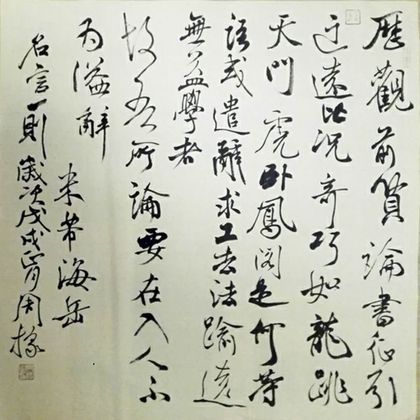 歷觀前賢論書征引
迂遠比况奇巧如龍跳
天門虎卧鳳阁是何等
語或遣辭求工去法踰遠
無益學者
故吾所論要在入人不
为溢辭
米芾海岳
名言一則歲次戊戌周